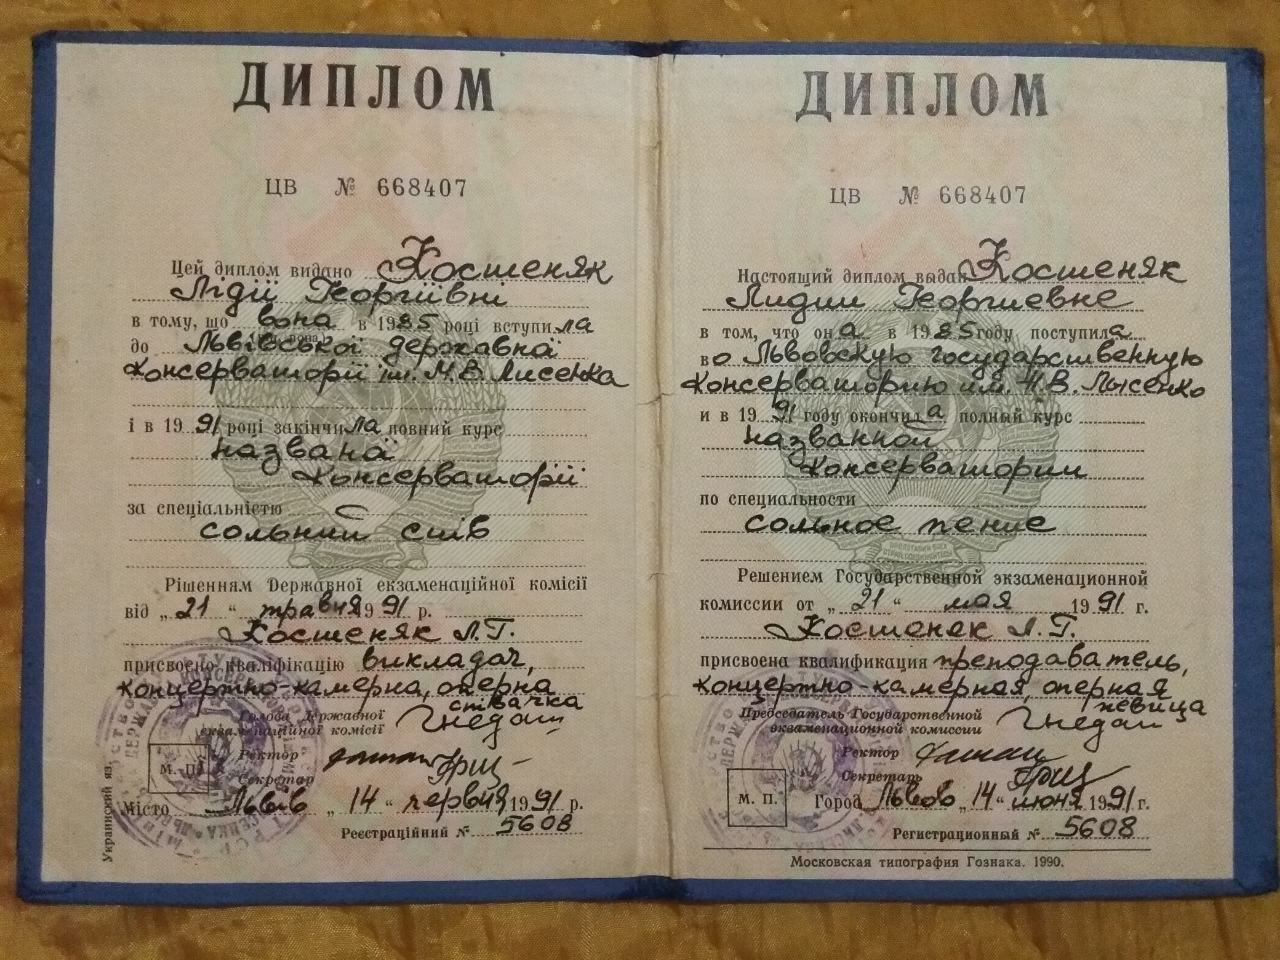 ДИПЛОМ
ЦВ № 668407
Цей диплом видано Костеняк
Лідії Георгіївні
в тому, що вона в 1985 році вступила
до Львівської державної
консерваторії ім. М.В. Лисенка
і в 1991 році закінчила повний курс
названої
консерваторії
за спеціальністю
сольний спів
Рішенням Державної екзаменаційної комісії
від „21“ травня 1991 р.
Костеняк Л.Г.
присвоєно кваліфікацію викладач,
концертно-камерна, оперна
співачка
Голова Державної
екзаменаційної комісії
Ректор
Секретар
М. П.
Місто Львів „14“ червня 1991 р.
Реєстраційний № 5608
Украинский яз.
ДИПЛОМ
ЦВ № 668407
Настоящий диплом выдан Костеняк
Лидии Георгиевне
в том, что она в 1985 году поступила
во Львовскую государственную
консерваторию им. Н.В. Лысенко
и в 1991 году окончила полный курс
названной
консерватории
по специальности
сольное пение
Решением Государственной экзаменационной
комиссии от „21“ мая 1991 г.
Костеняк Л.Г.
присвоена квалификация преподаватель,
концертно камерная, оперная
певица
Председатель Государственной
экзаменационной комиссии
Ректор
Секретарь
М. П.
Город Львов „14“ июня 1991 г.
Регистрационный № 5608
Московская типография Гознака. 1990.